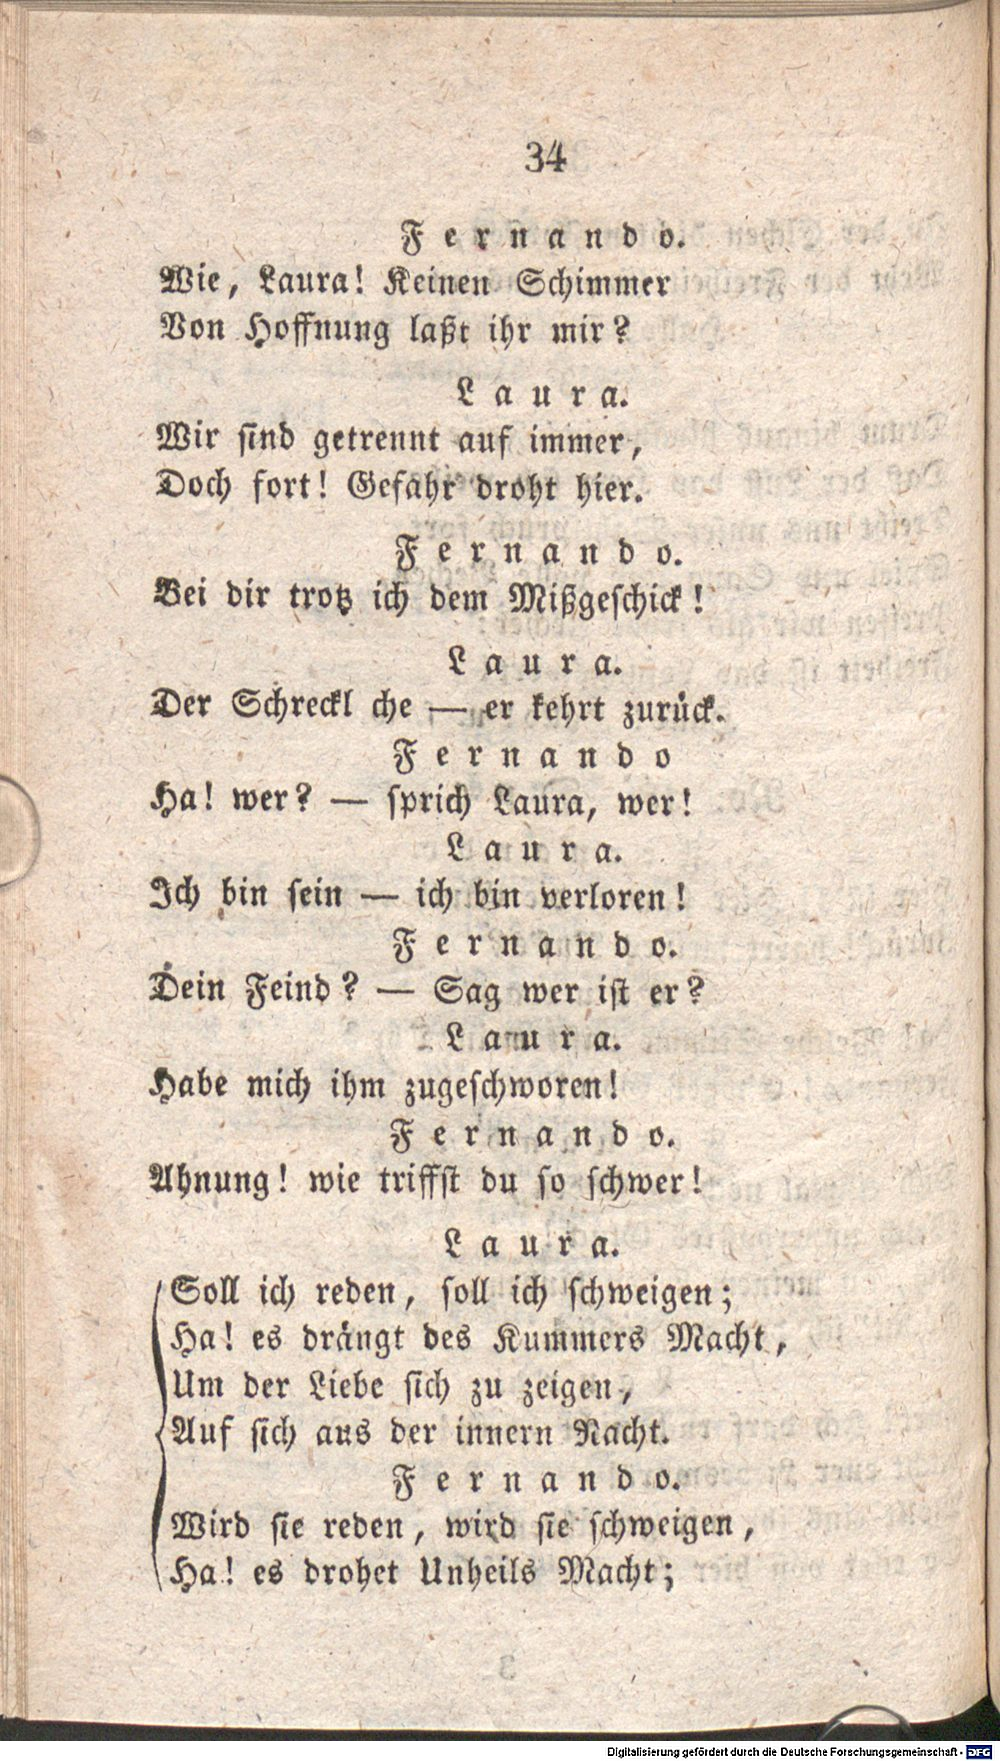 34
Fernando.
Wie, Laura! Keinen Schimmer
Von Hoffnung laßt ihr mir?
Laura.
Wir sind getrennt auf immer,
Doch fort! Gefahr droht hier.
Fernando.
Bei dir trotz ich dem Mißgeschick!
Laura.
Der Schreckl che — er kehrt zurück.
Fernando
Ha! wer? — sprich Laura, wer!
Laura.
Ich bin sein — ich bin verloren!
Fernando.
Dein Feind? — Sag wer ist er?
Laura.
Habe mich ihm zugeschworen!
Fernando.
Ahnung! wie triffst du so schwer!
Laura.
Soll ich reden, soll ich schweigen;
Ha! es drängt des Kummers Macht,
Um der Liebe sich zu zeigen,
Auf sich aus der innern Nacht.
Fernando.
Wird sie reden, wird sie schweigen,
Ha! es drohet Unheils Macht;
Digitalisierung gefördert durch die Deutsche Forschungsgemeinschaft - DFG